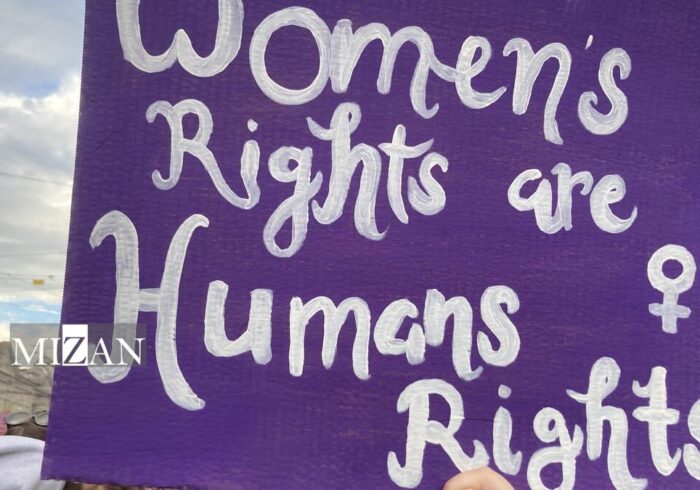 Women's
Rights are
Humans
Rights
MIZAN